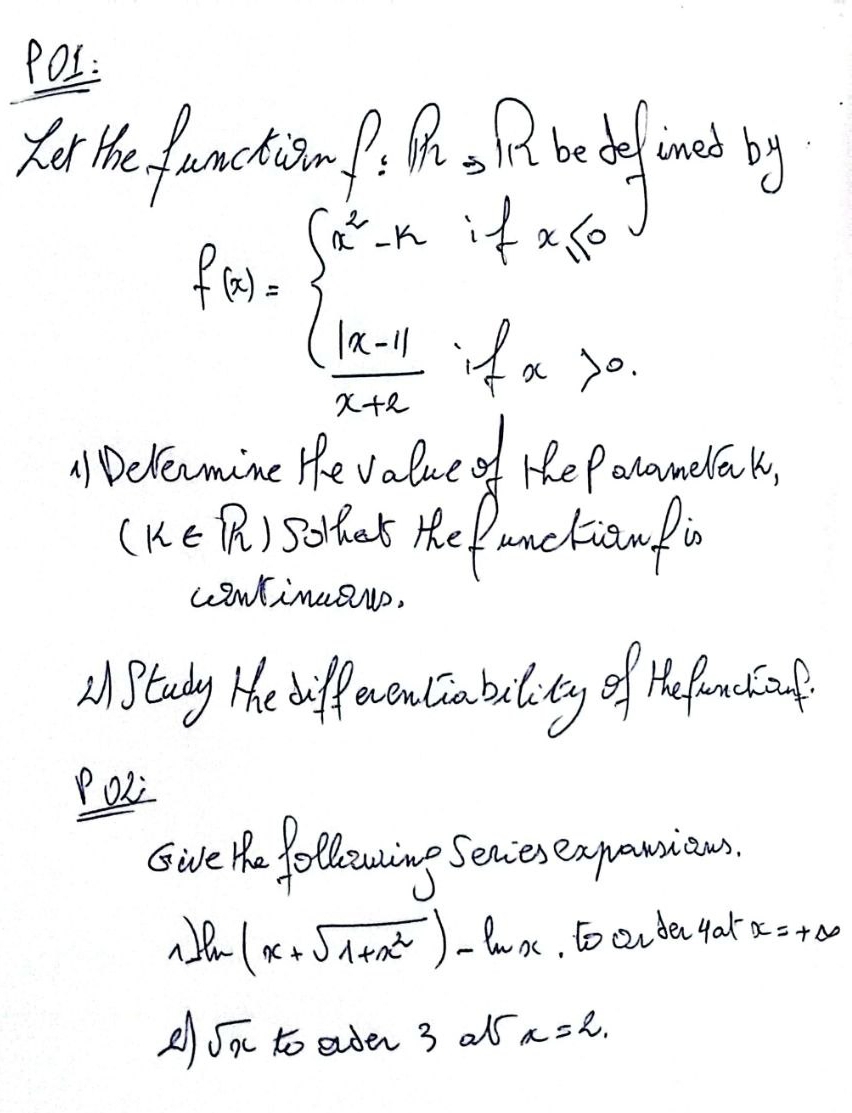 P01:
Let the function f: ℝ → ℝ be defined by
f(x) = { x² - k if x ⩽ 0
|x-1| / (x+2) if x > 0.
1) Determine the value of the Parameter k,
(k ∈ ℝ) So that the function f is
continuous.
2) Study the differentiability of the function f.
P 02:
Give the following Series expansions.
1) ln(x + √(1+x²)) - ln x , to order 4 at x = +∞
2) √x to order 3 at x = 2.